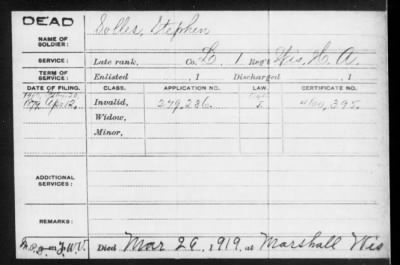 DEAD
NAME OF SOLDIER: Solles, Stephen
SERVICE: Late rank, Co. L, 1 Reg't Wis. H. A.
TERM OF SERVICE: Enlisted , 1 Discharged , 1
DATE OF FILING. CLASS. APPLICATION NO. LAW. CERTIFICATE NO.
1879 Apr 12. Invalid, 279,286. 395.
Widow,
Minor,
ADDITIONAL SERVICES:
REMARKS:
Died Mar 26, 1919, at Marshall Wis